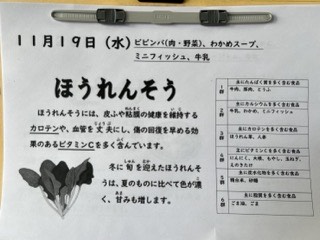 11月19日（水）ビビンバ（肉・野菜）、わかめスープ、
ミニフィッシュ、牛乳
ほうれんそう
ほうれんそうには、皮ふや粘膜の健康を維持する
カロテンや、血管を丈夫にし、傷の回復を早める効
果のあるビタミンCを多く含んでいます。
冬に旬を迎えたほうれんそ
うは、夏のものに比べて色が濃
く、甘みも増します。
1群 主にたんぱく質を多く含む食品
牛肉、豚肉、とうふ
2群 主にカルシウムを多く含む食品
牛乳、わかめ、ミニフィッシュ
3群 主にカロテンを多く含む食品
ほうれん草、人参
4群 主にビタミンCを多く含む食品
にんにく、大根、もやし、玉ねぎ、
えのきたけ
5群 主に炭水化物を多く含む食品
精白米、砂糖
6群 主に脂質を多く含む食品
ごま油、ごま